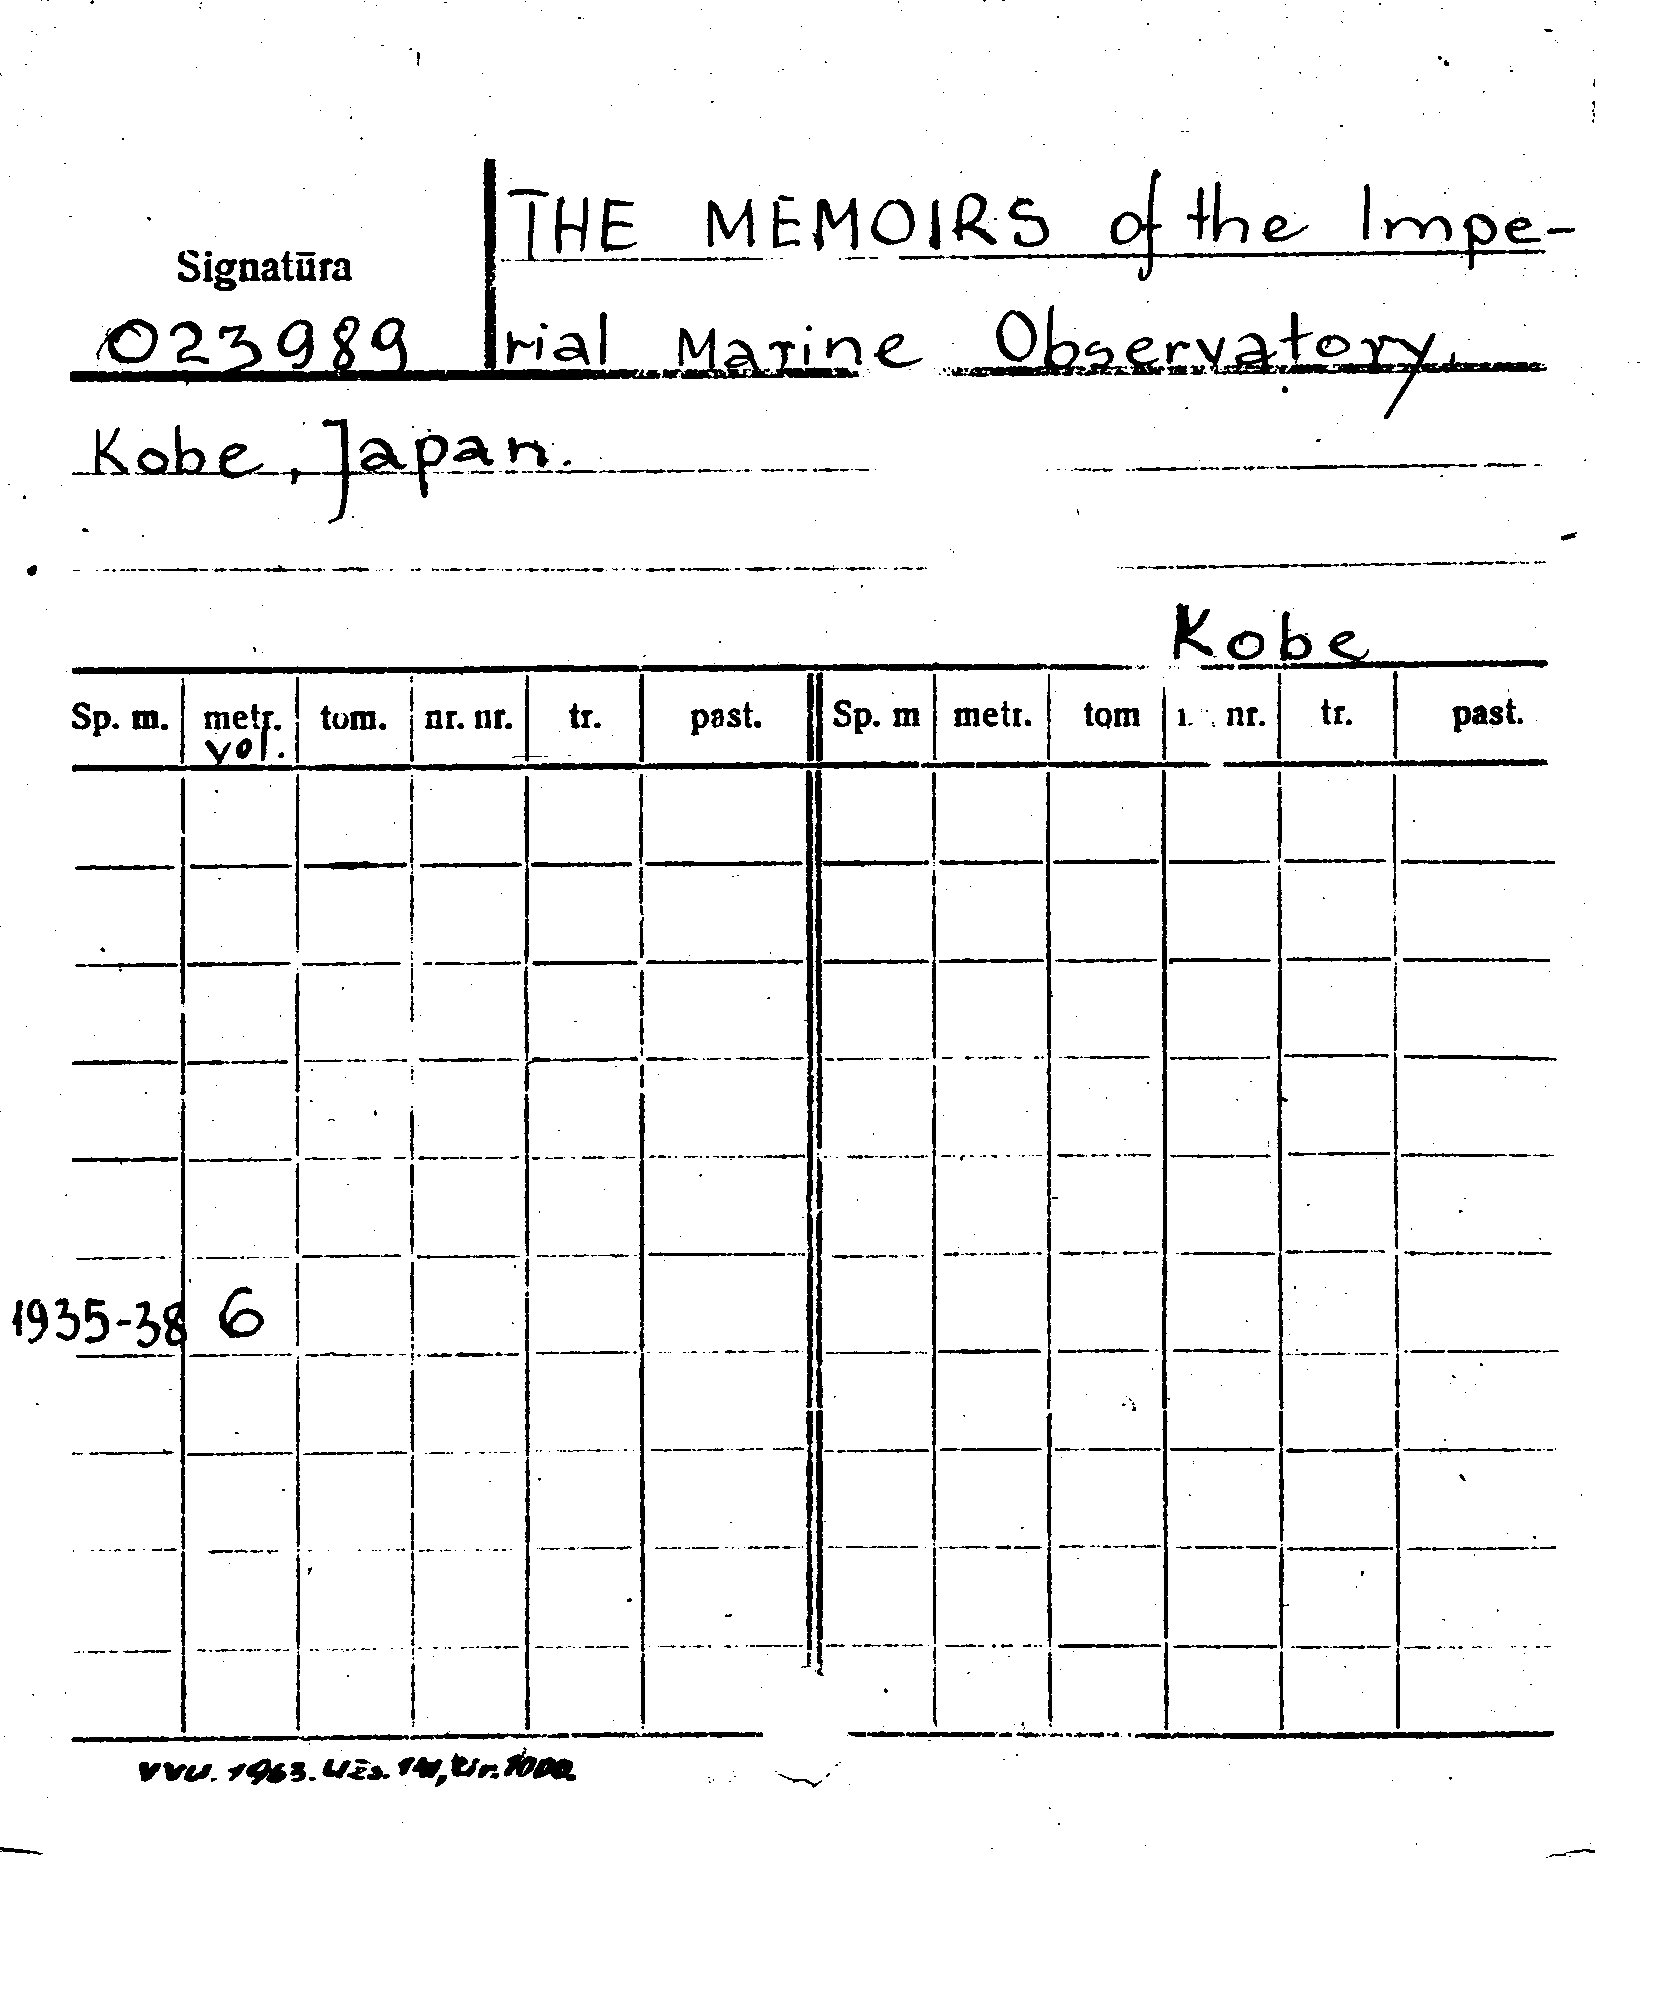 THE MEMOIRS of the Impe-
Signatūra
023989 rial Marine Observatory,
Kobe, Japan.
Kobe
Sp. m. metr. tom. nr. nr. tr. past. Sp. m metr. tom nr. tr. past.
vol.
1935-38 6
VVU. 1963. Užs. tir. 1000.